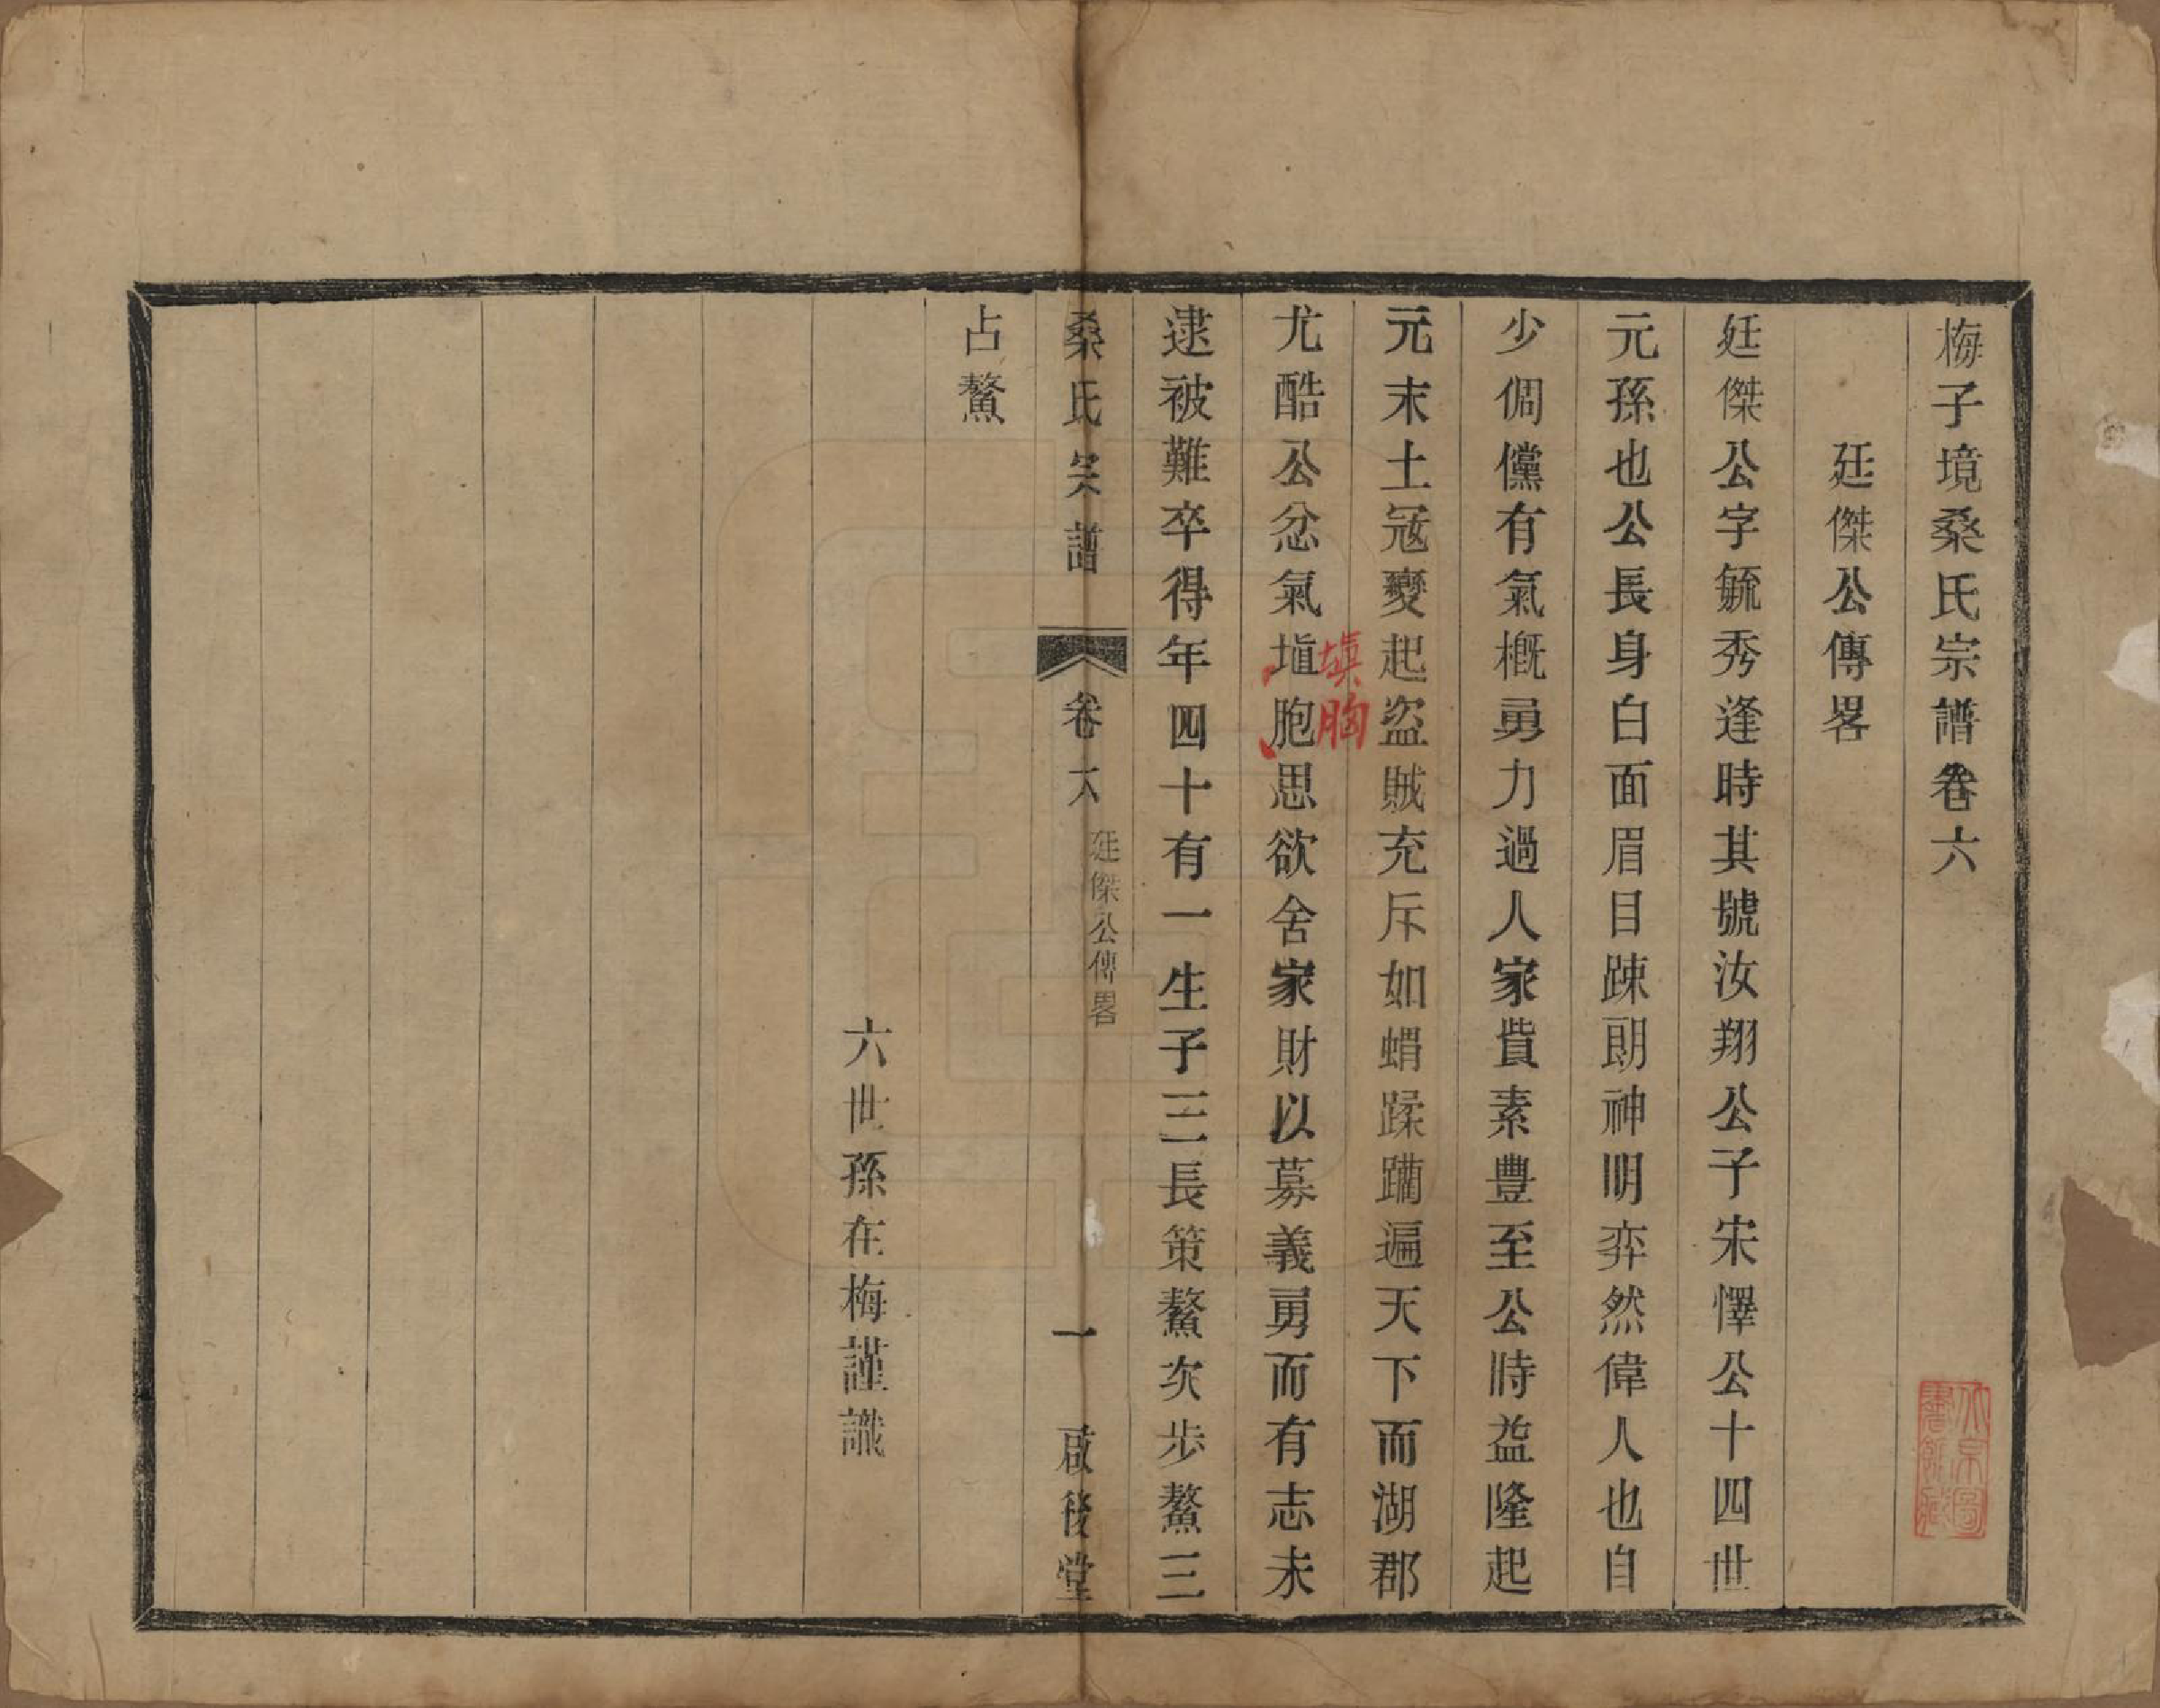 梅子境桑氏宗譜卷六
廷傑公傳畧
廷傑公字毓秀逢時其號汝翔公子宋懌公十四世
元孫也公長身白面眉目踈朗神明弈然偉人也自
少倜儻有氣概勇力過人家貲素豐至公時益隆起
元末土冦變起盜賊充斥如蝟蹂躪遍天下而湖郡
尤酷公忿氣塡胞思欲舍家財以募義勇而有志未
塡胸
逮被難卒得年四十有一生子三長策鰲次步鰲三
桑氏宗譜
卷六
廷傑公傳畧
一
啟後堂
占鰲
六世孫在梅謹識